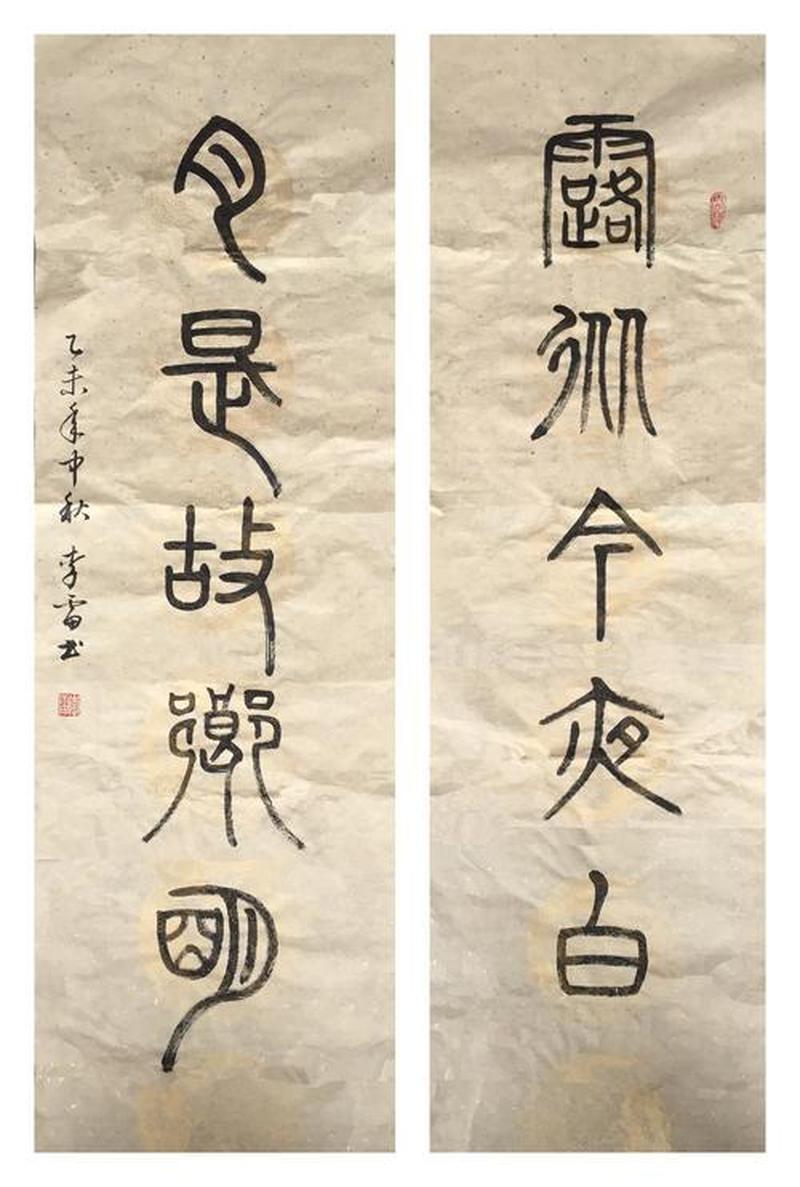 露从今夜白
月是故乡明
乙未年中秋 李雷书